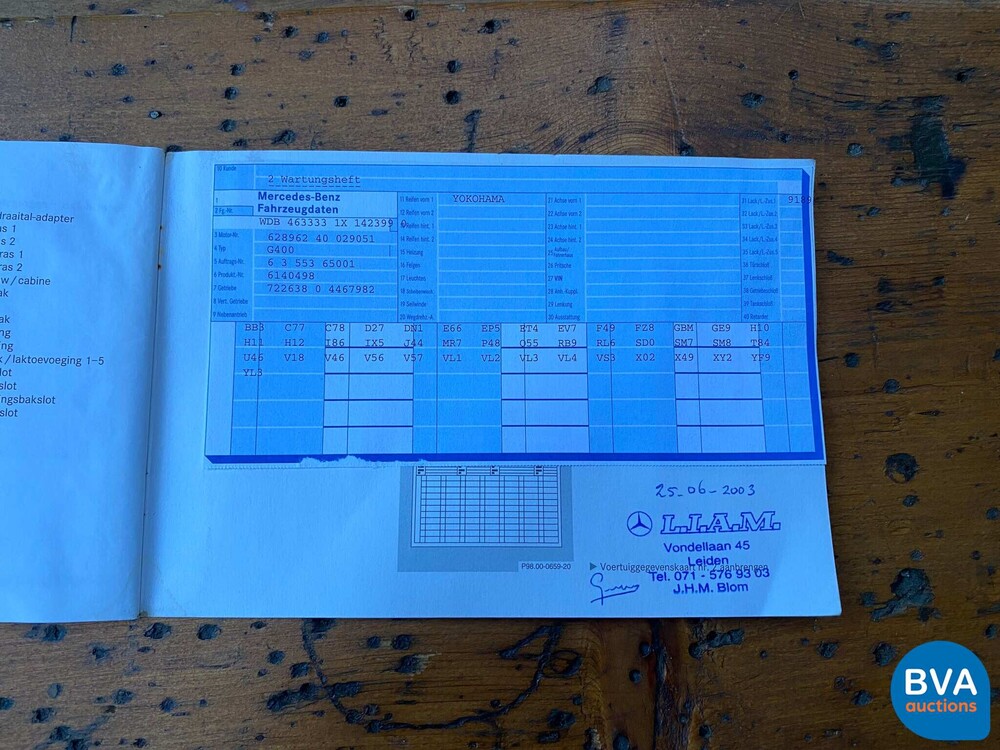 draaital-adapter
as 1
s 2
ras 1
ras 2
w / cabine
ak
ak
ng
ng
k / laktoevoeging 1–5
lot
slot
ngsbakslot
slot
10 Kunde
2 Wartungsheft
1
Mercedes-Benz
Fahrzeugdaten
2 Fg.-Nr.
WDB 463333 1X 142399
3 Motor-Nr.
628962 40 029051
4 Typ
G400
5 Auftrags-Nr.
6 3 553 65001
6 Produkt.-Nr.
6140498
7 Getriebe
722638 0 4467982
8 Vert. Getriebe
9 Nebenantrieb
11 Reifen vorn 1
YOKOHAMA
12 Reifen vorn 2
13 Reifen hint. 1
14 Reifen hint. 2
15 Heizung
16 Felgen
17 Leuchten
19 Seilwinde
20 Wegdrehz.-A.
21 Achse vorn 1
22 Achse vorn 2
23 Achse hint. 1
24 Achse hint. 2
26 Pritsche
27 VIN
28 Anh. Kuppl.
29 Lenkung
30 Ausstattung
31 Lack/L.-Zus.1
9189
32 Lack/L.-Zus.2
33 Lack/L.-Zus.3
34 Lack/L.-Zus.4
35 Lack/L.-Zus.5
36 Türschloß
37 Lenkschloß
39 Tankschloß
40 Retarder
BB3 C77 C78 D27 DN1 E66 EP5 ET4 EV7 F49 FZ8 GBM GE9 H10
H11 H12 I86 IX5 J44 MR7 P48 Q55 RB9 RL6 SD0 SM7 SM8 T84
U46 V18 V46 V56 V57 VL1 VL2 VL3 VL4 VS3 X02 X49 XY2 YF9
YL3
P98.00-0659-20
25-06-2003
L.I.A.M.
Vondellaan 45
Leiden
▶ Voertuiggegevenskaart nr. 2 aanbrengen
Tel. 071 - 576 93 03
J.H.M. Blom
BVA
auctions